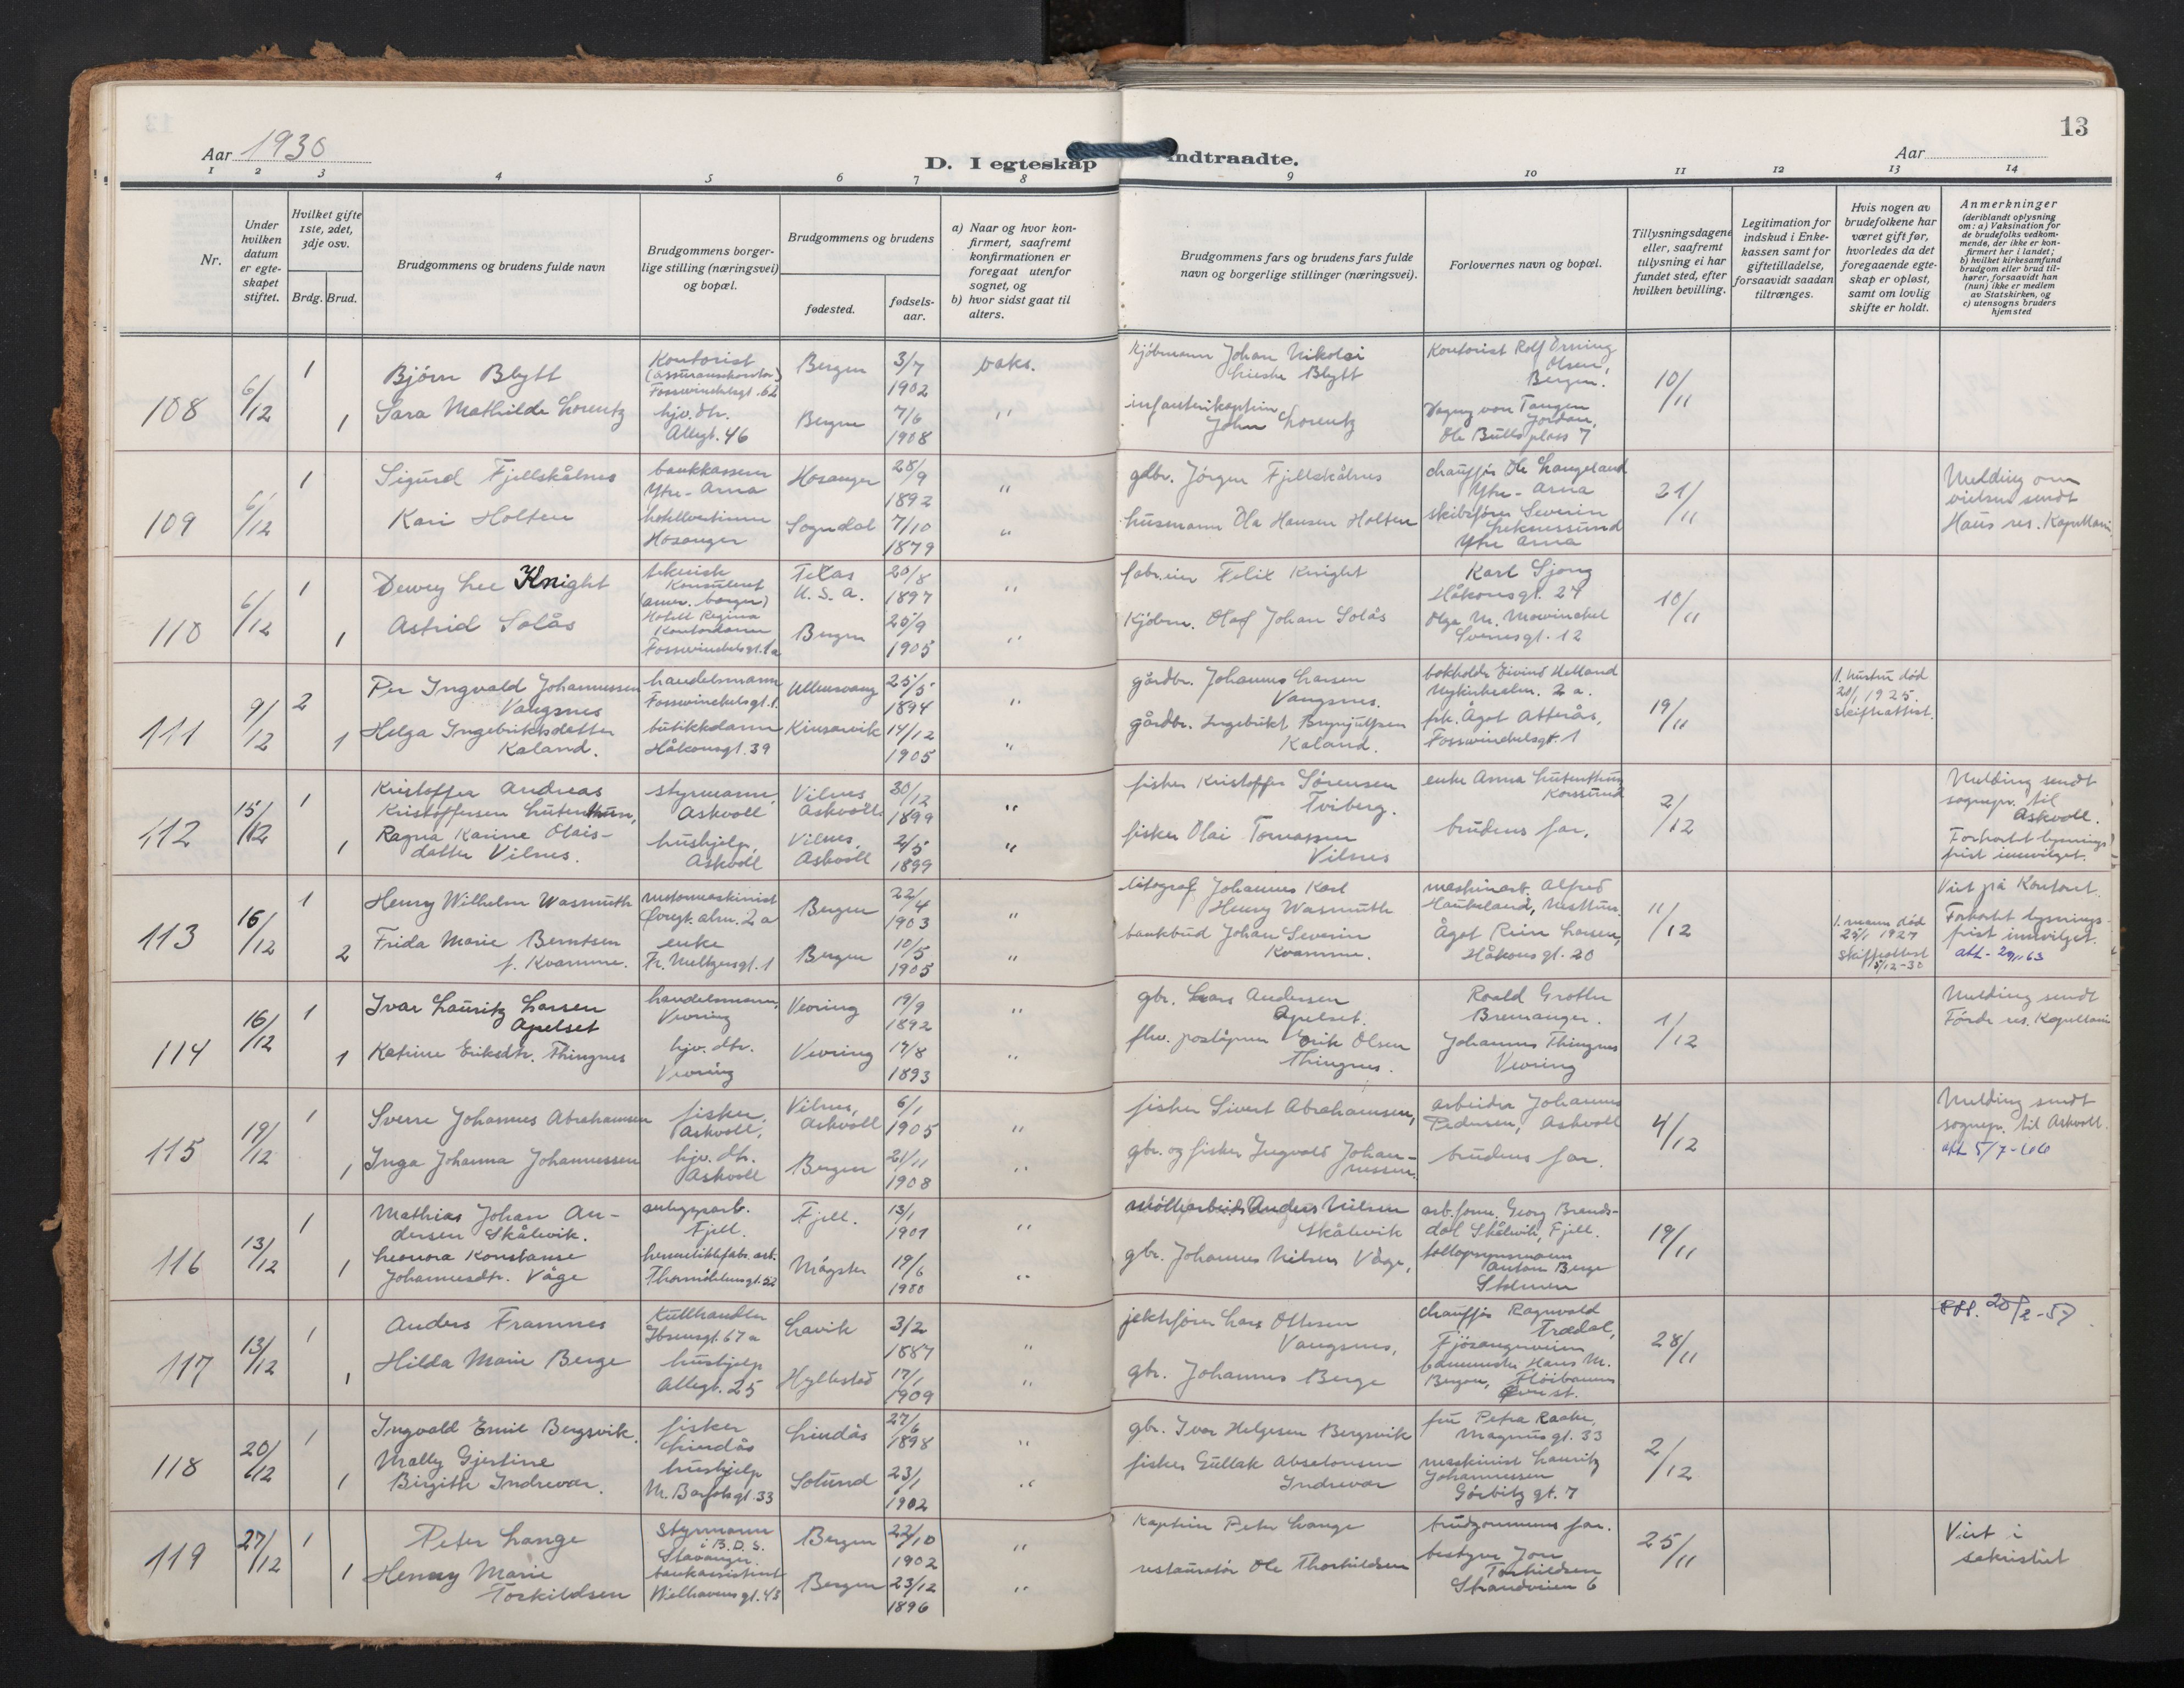 13
Aar 1930
D. I egteskap indtraadte.
Aar
1 2 3 4 5 6 7 8 9 10 11 12 13 14
Nr.
Under hvilken datum er egteskapet stiftet.
Hvilket gifte 1ste, 2det, 3dje osv.
Brdg. Brud.
Brudgommens og brudens fulde navn
Brudgommens borgerlige stilling (næringsvei) og bopæl.
Brudgommens og brudens
fødested.
fødselsaar.
a) Naar og hvor konfirmert, saafremt konfirmationen er foregaat utenfor sognet, og
b) hvor sidst gaat til alters.
Brudgommens fars og brudens fars fulde navn og borgerlige stillinger (næringsvei).
Forlovernes navn og bopæl.
Tillysningsdagene eller, saafremt tillysning ei har fundet sted, efter hvilken bevilling.
Legitimation for indskud i Enkekassen samt for giftetilladelse, forsaavidt saadan tiltrænges.
Hvis nogen av brudefolkene har været gift før, hvorledes da det foregaaende egteskap er opløst, samt om lovlig skifte er holdt.
Anmerkninger
(deriblandt oplysning om: a) Vaksination for de brudefolks vedkommende, der ikke er konfirmert her i landet;
b) hvilket kirkesamfund brudgom eller brud tilhører, forsaavidt han (hun) ikke er medlem av Statskirken, og
c) utensogns bruders hjemsted
108 6/12 1 Bjørn Blytt Kontorist (assuransekontor) Fosswinckelsgt. 62 Bergen 3/7 1902 vaks. Kjøbmann Johan Nikolai Lieske Blytt Kontorist Rolf Erning Olsen, Bergen. 10/11
1 Sara Mathilde Lorentz hjv. dtr. Allegt. 46 Bergen 7/6 1908 " infanterikaptein John Lorentz Vagny von Tangen Jordan, Ole Bulls plass 7
109 6/12 1 Sigurd Fjellskålnes bankkasserer Ytre-Arna Hosanger 28/9 1892 " gdbr. Jørgen Fjellskålnes chauffør Ole Langeland Ytre-Arna 21/11 Melding om vielsen sendt Haus res. Kapellani
Kari Holten hotellvertinne Hosanger Sogndal 7/10 1879 " husmann Ola Hansen Holten skibsfører Severin Leknessund Ytre Arna
110 6/12 1 Dewey Lee Knight teknisk Konsulent (amer. borger) Hotell Regina Texas U.S.a. 20/8 1897 " fabr.eier Felix Knight Karl Sjong Håkonsgt. 27 10/11
1 Astrid Solås Kontordame Fosswinckelsgt. 1a Bergen 25/9 1905 " Kjøbm. Olaf Johan Solås Olga M. Mowinckel Sverresgt. 12
111 9/12 2 Per Ingvald Johannessen Vangsnes handelsmann Fosswinckelsgt. 1. Ullensvang 25/5 1894 " gårdbr. Johannes Larsen Vangsnes. bokholder Eivind Helland Nykirkealm. 2 a. 19/11 1. hustru død 20/1 1925. skifteattest.
1 Helga Ingebriktsdatter Kaland. butikkdame Håkonsgt. 39 Kinsarvik 14/12 1905 " gårdbr. Ingebrikt Brynjulfsen Kaland. frk. Ågot Atterås, Fosswinckelsgt. 1
112 15/12 1 Kristoffer Andreas Kristoffersen Lutenthun, styrmann, Askvoll Vilnes Askvoll 30/12 1899 " fisker Kristoffer Sørensen Tviberg. enke Anna Lutenthun Korssund 2/12 Melding sendt sognepr. til Askvoll. Forkortet lysningsfrist innvilget.
1 Ragna Karine Olaisdatter Vilnes. hushjelp, Askvoll Vilnes, Askvoll 2/5 1899 " fisker Olai Tomassen Vilnes brudens far.
113 16/12 1 Henry Wilhelm Wasmuth motormaskinist Øvregt. alm. 2 a Bergen 22/4 1903 " litograf Johannes Karl Henry Wasmuth maskinarb. Alfred Haukeland, Nesttun. 11/12 Viet på Kontoret. Forkortet lysningsfrist innvilget. att- 29/11 63
2 Frida Marie Berntsen f. Kvamme. enke Fr. Meltzersgt. 1 Bergen 10/5 1905 " bankbud Johan Severin Kvamme. Ågot Rein Larsen, Håkonsgt. 20 1. mann død 25/1 1927 skifteattest 5/12-30
114 16/12 1 Ivar Lauritz Larsen Apelset handelsmann, Vevring Vevring 19/9 1892 " gbr. Lars Andersen Apelset. Roald Grotle Bremanger. 1/12 Melding sendt Førde res. Kapellani
1 Katrine Eriksdtr. Thingnes hjv. dtr. Vevring Vevring 17/8 1893 " fhv. poståpner Erik Olsen Thingnes. Johannes Thingnes Vevring
115 19/12 1 Sverre Johannes Abrahamsen fisker, Askvoll, Vilnes, Askvoll 6/1 1905 " fisker Sivert Abrahamsen, arbeider Johannes Pedersen, Askvoll 4/12 Melding sendt sognepr. til Askvoll. att 5/7-66
1 Inga Johanna Johannessen hjv. dtr. Askvoll Bergen 21/11 1908 " gbr. og fisker Ingvald Johannessen brudens far.
116 13/12 1 Mathias Johan Andersen Skålevik. anleggsarb. Fjell. Fjell. 13/1 1901 " møllearbeider Anders Nilsen Skålevik arb.form. Georg Brendsdal Skålevik, Fjell. 19/11
1 Leonora Konstanse Johannesdtr. Våge hermetikkfabr. arb. Thormøhlensgt. 52 Møgster 19/6 1900 " gbr. Johannes Nilsen Våge, tolloppsynsmann Anton Berge Stolmen
117 13/12 1 Anders Framnes Kullhandler Ibsensgt. 67a Lavik 3/2 1887 " jektefører Lars Ottesen Vangsnes, chauffør Ragnvald Trædal, Fjøsangerveien 28/11 20/2-57
1 Hilda Marie Berge hushjelp Allegt. 25 Hyllestad 17/1 1909 " gbr. Johannes Berge banemester Hans M. Bergen, Fløibanens øvre st.
118 20/12 1 Ingvald Emil Bergsvik. fisker Lindås Lindås 27/6 1898 " gbr. Ivar Helgesen Bergsvik fru Petra Raake, Magnusgt. 33 2/12
1 Mally Gjertine Birgitte Indrevær. hushjelp M. Barfotsgt. 33 Solund 23/1 1902 " fisker Gullak Absalonsen Indrevær maskinist Lauritz Johannessen Gørbitzgt. 7
119 27/12 1 Peter Lange styrmann i B.D.S. Stavanger. Bergen 22/10 1902 " Kaptein Peter Lange brudgommens far. 25/11 Viet i sakristiet
1 Henny Marie Torkildsen bankassistent Welhavensgt. 43 Bergen 23/12 1896 " restauratør Ole Thorkildsen bestyrer Jon Torkildsen Strandveien 6